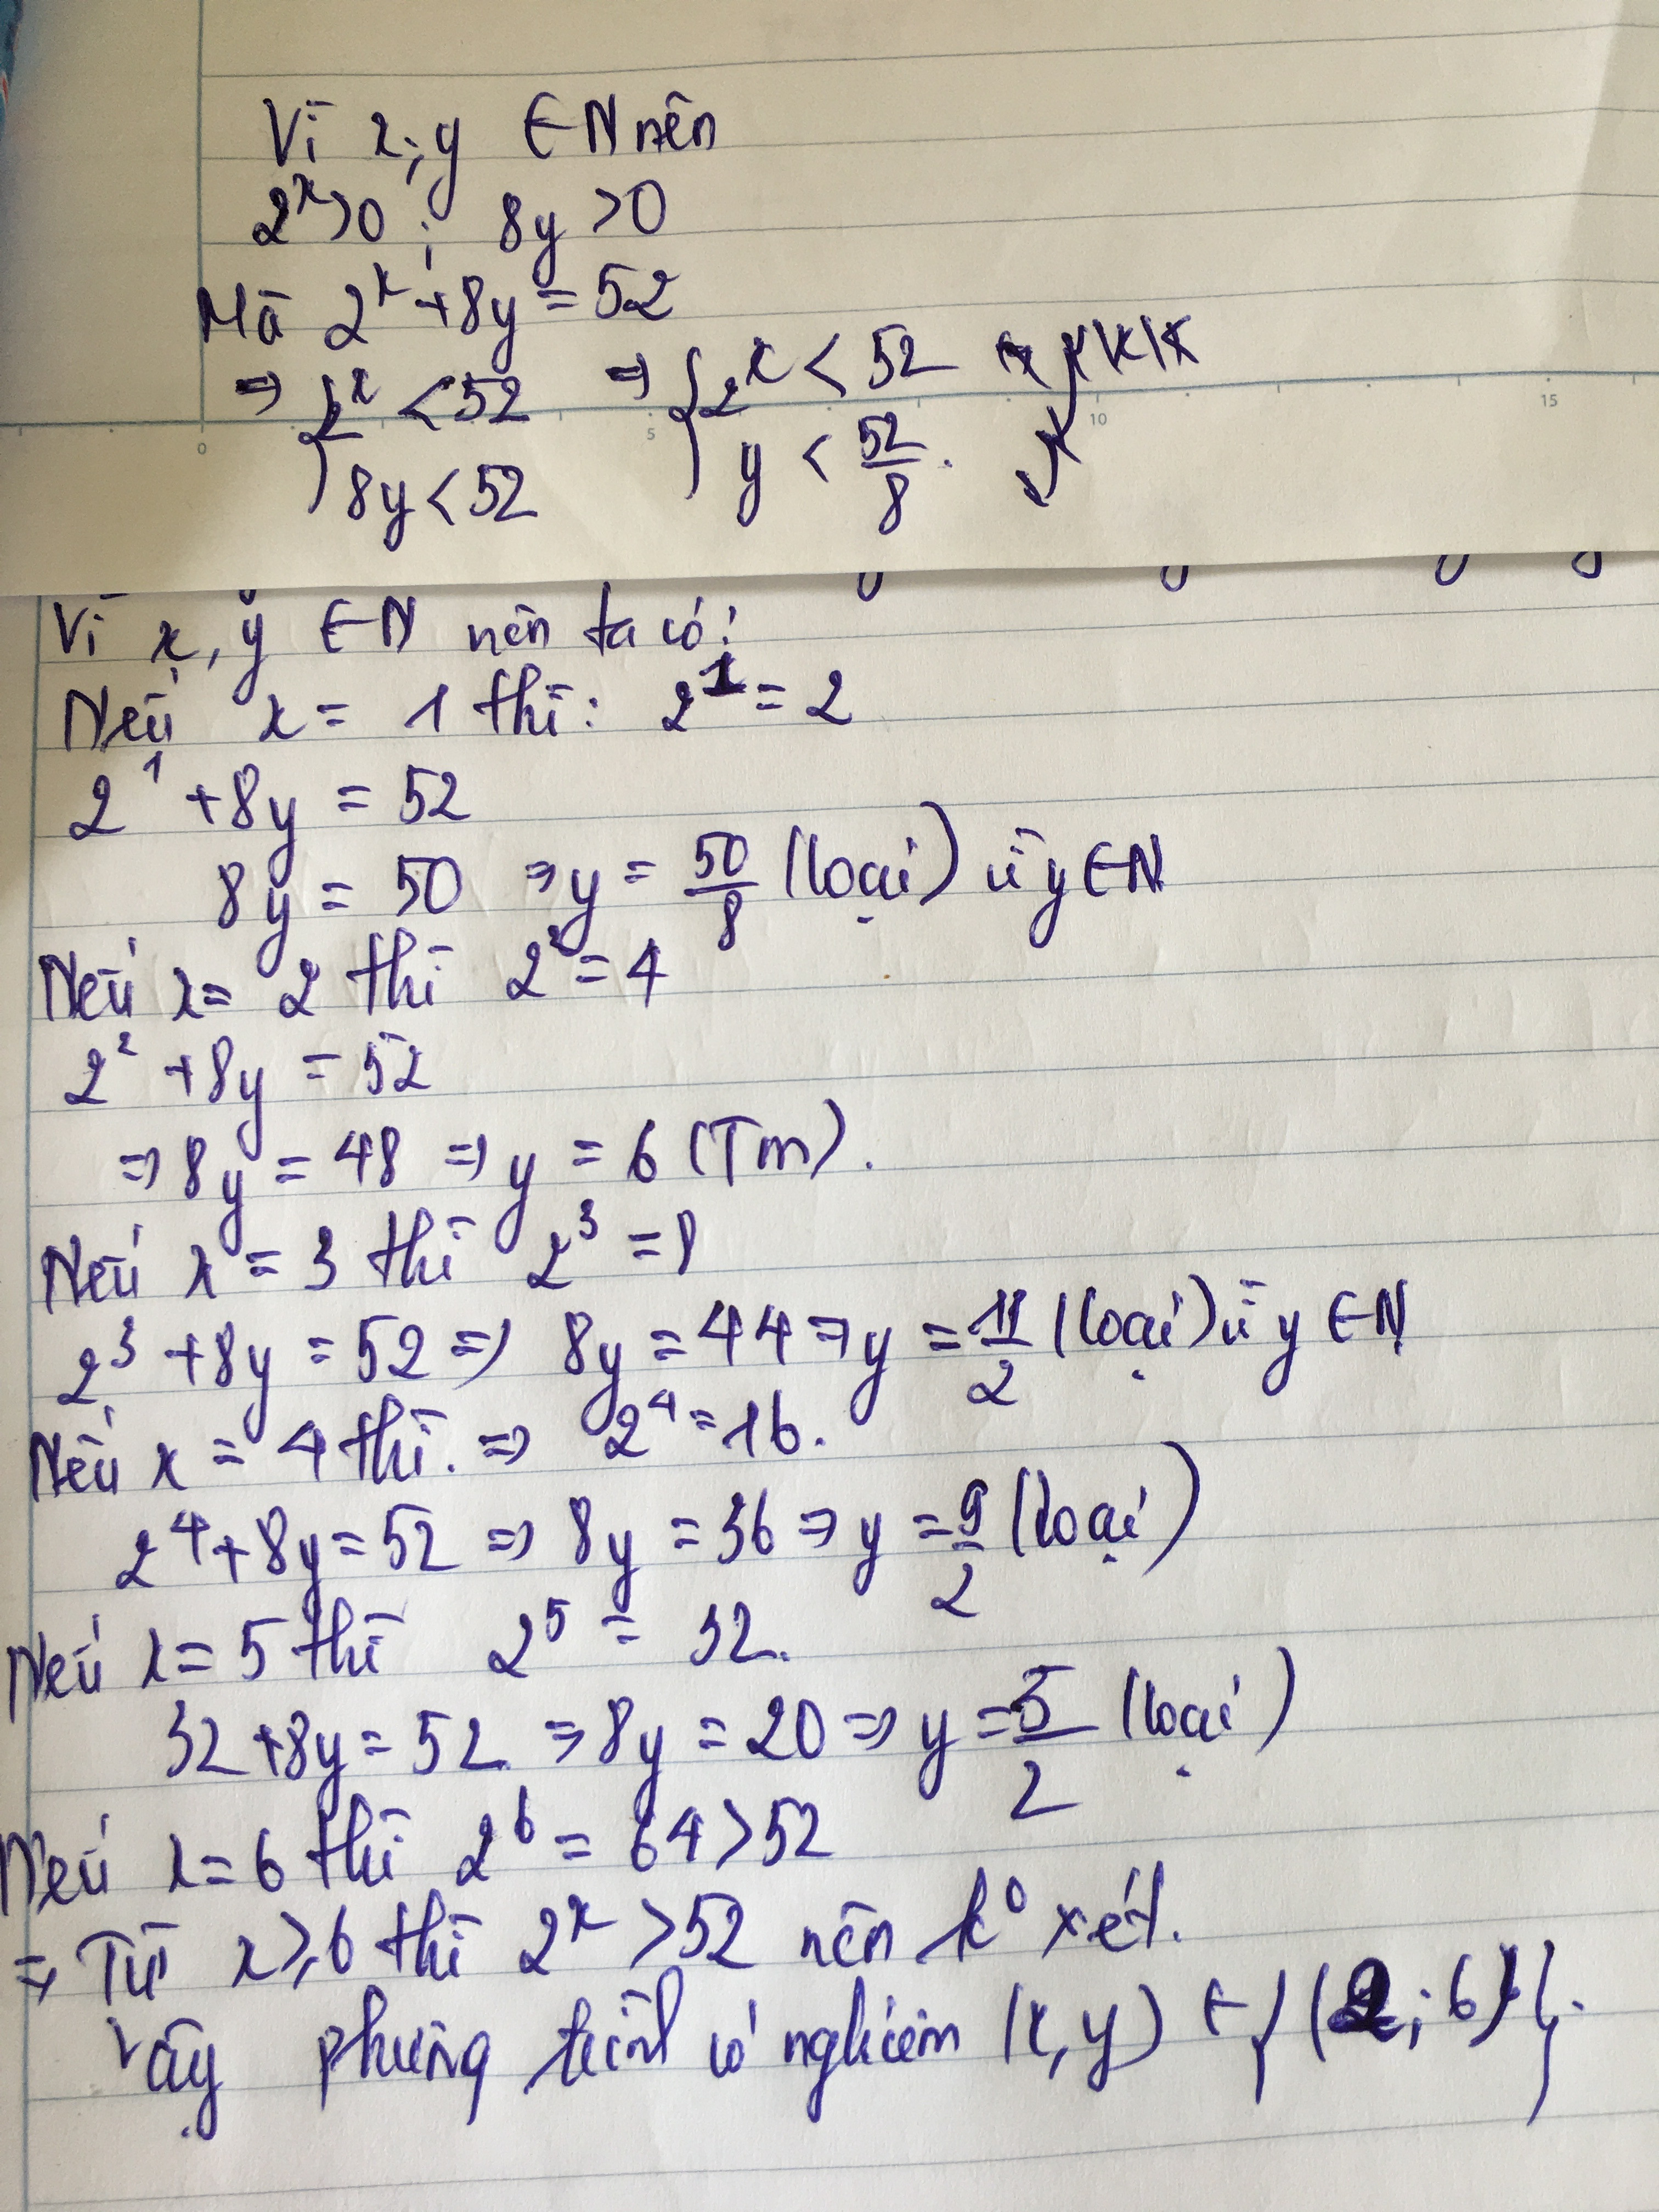 Vì x, y ∈ N nên
2^x > 0 ; 8y > 0
Mà 2^x + 8y = 52
⇒ { 2^x < 52 ⇒ { 2^x < 52
8y < 52 y < 52/8 .
0 5 10 15
Vì x, y ∈ N nên ta có:
Nếu x = 1 thì: 2^1 = 2
2^1 + 8y = 52
8y = 50 ⇒ y = 50/8 (loại) vì y ∈ N
Nếu x = 2 thì 2^2 = 4
2^2 + 8y = 52
⇒ 8y = 48 ⇒ y = 6 (Tm).
Nếu x = 3 thì 2^3 = 8
2^3 + 8y = 52 ⇒ 8y = 44 ⇒ y = 11/2 (loại) vì y ∈ N
Nếu x = 4 thì. ⇒ 2^4 = 16.
2^4 + 8y = 52 ⇒ 8y = 36 ⇒ y = 9/2 (loại)
Nếu x = 5 thì 2^5 = 32.
32 + 8y = 52 ⇒ 8y = 20 ⇒ y = 5/2 (loại)
Nếu x = 6 thì 2^6 = 64 > 52
⇒ Từ x ≥ 6 thì 2^x > 52 nên k⁰ xét.
Vậy phương trình có nghiệm (x, y) ∈ {(2; 6)}.